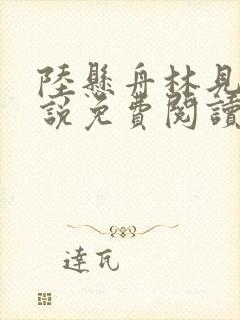 陸懸舟林見
說免費閱讀
達瓦